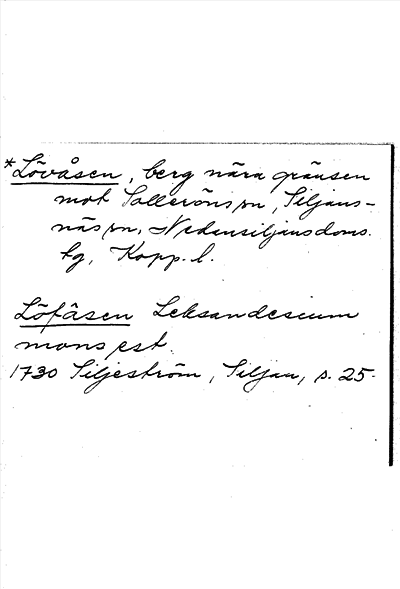 *Lövåsen, berg nära gränsen
mot Solleröns sn, Siljans-
näs sn, Nedansiljans doms.
tg, Kopp. l.
Löfåsen Leksandescium
mons est.
1730 Siljeström, Siljan, s. 25.